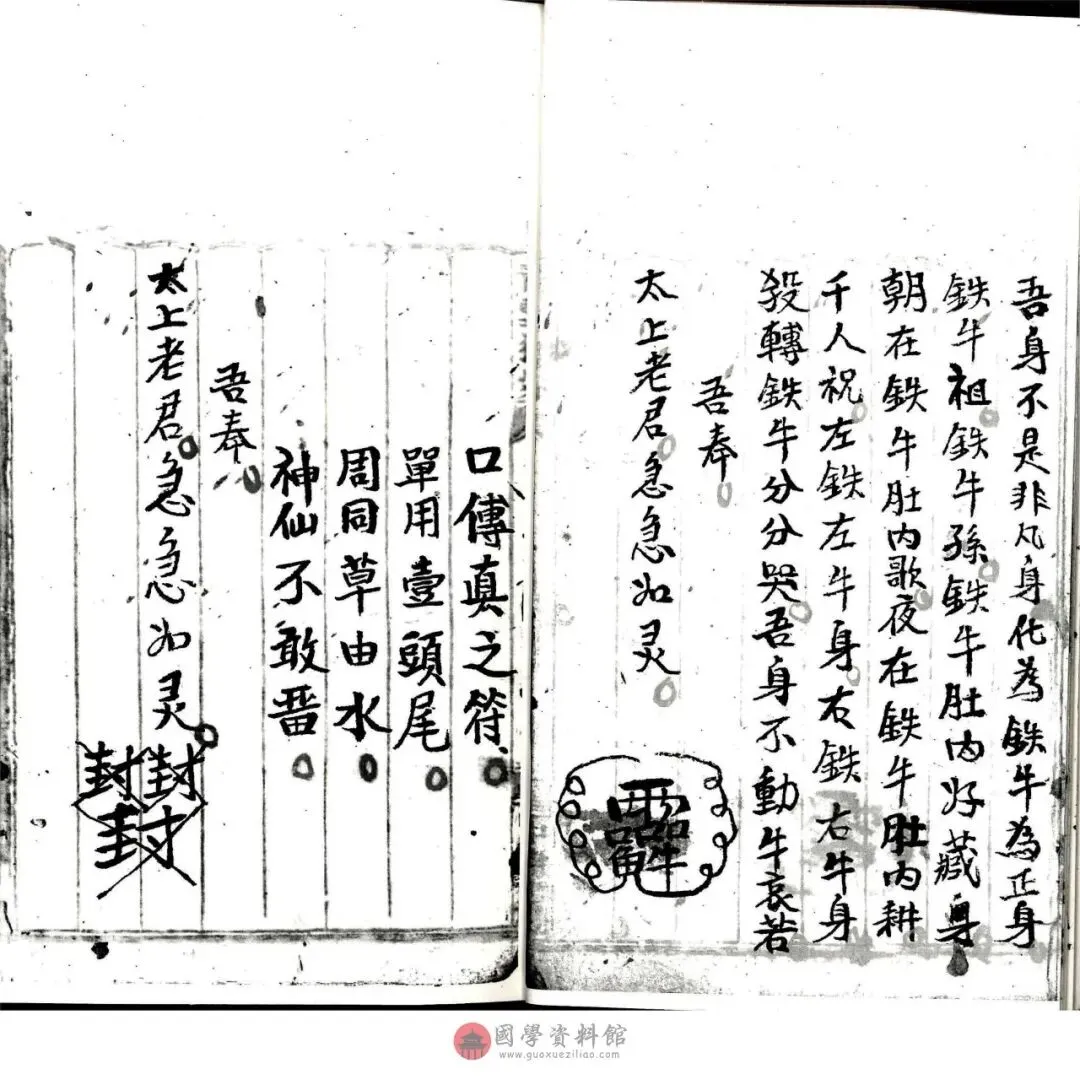 吾身不是非凡身化為鉄牛為正身
鉄牛祖鉄牛孫鉄牛肚内好藏身
朝在鉄牛肚内歌夜在鉄牛肚内耕
千人祝左鉄左牛身右鉄右牛身
殺轉鉄牛分分哭吾身不動牛哀若
吾奉
太上老君急急如灵
口傳真之符
單用壹頭尾
周同草由水
神仙不敢畨
吾奉
太上老君急急如灵
封封
封
國學資料館
www.guoxueziliao.com